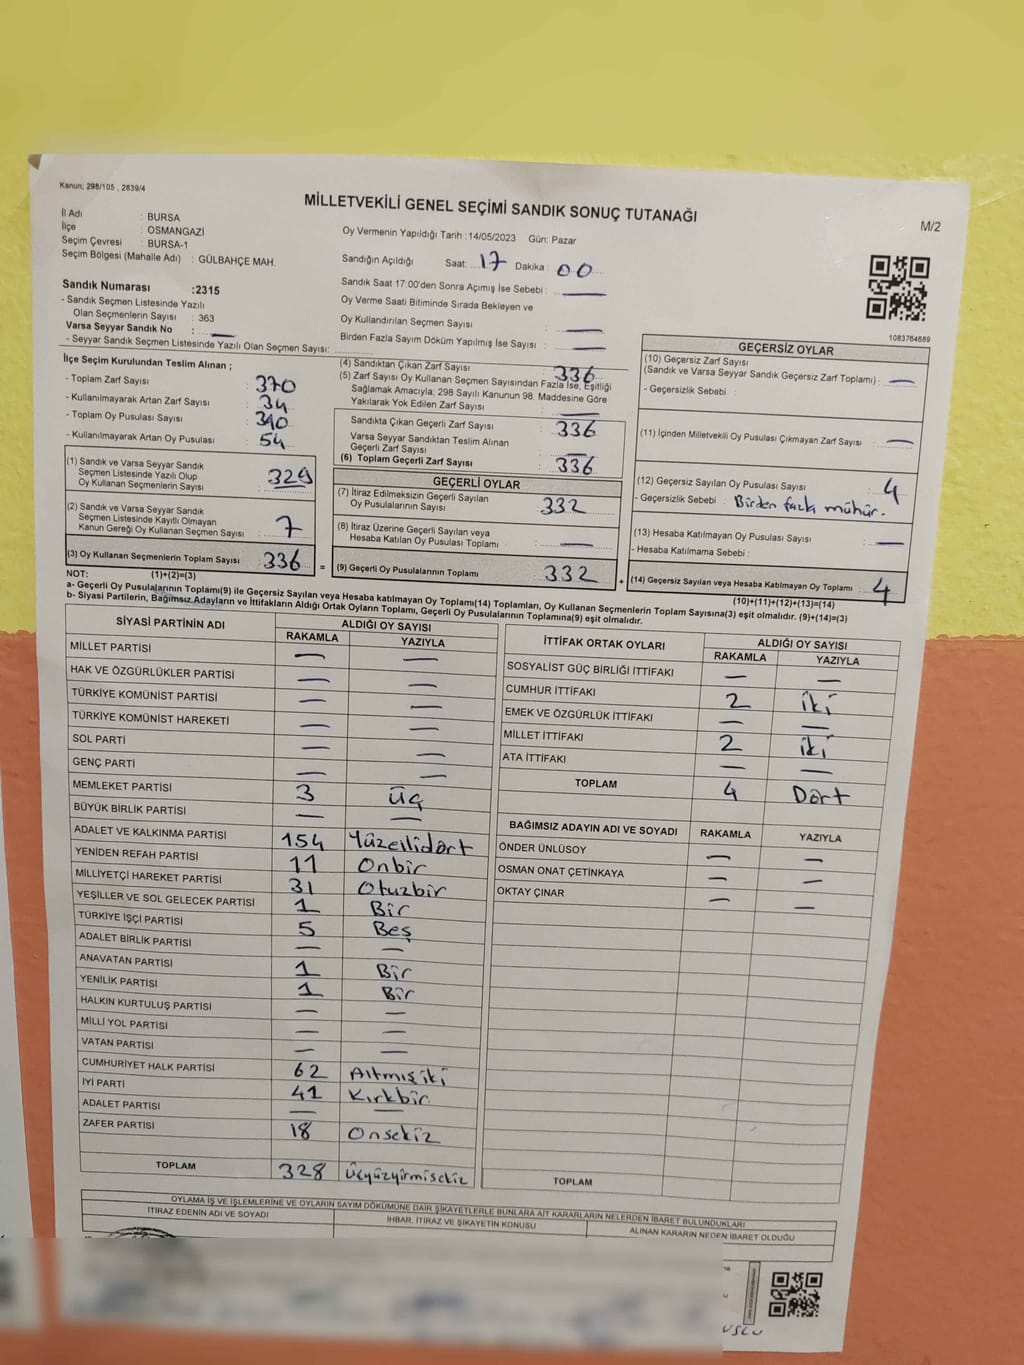 Kanun; 298/105 , 2839/4
MİLLETVEKİLİ GENEL SEÇİMİ SANDIK SONUÇ TUTANAĞI
M/2
İl Adı : BURSA
İlçe : OSMANGAZİ
Seçim Çevresi : BURSA-1
Seçim Bölgesi (Mahalle Adı) : GÜLBAHÇE MAH.
Oy Vermenin Yapıldığı Tarih :14/05/2023 Gün: Pazar
Sandığın Açıldığı Saat: 17 Dakika : 00
Sandık Saat 17:00'den Sonra Açımış İse Sebebi : —
Oy Verme Saati Bitiminde Sırada Bekleyen ve
Oy Kullandırılan Seçmen Sayısı : —
Birden Fazla Sayım Döküm Yapılmış İse Sayısı : —
1083764689
Sandık Numarası :2315
- Sandık Seçmen Listesinde Yazılı
Olan Seçmenlerin Sayısı : 363
Varsa Seyyar Sandık No : —
- Seyyar Sandık Seçmen Listesinde Yazılı Olan Seçmen Sayısı:
İlçe Seçim Kurulundan Teslim Alınan ;
- Toplam Zarf Sayısı : 370
- Kullanılmayarak Artan Zarf Sayısı : 34
- Toplam Oy Pusulası Sayısı : 390
- Kullanılmayarak Artan Oy Pusulası : 54
(1) Sandık ve Varsa Seyyar Sandık
Seçmen Listesinde Yazılı Olup
Oy Kullanan Seçmenlerin Sayısı : 329
(2) Sandık ve Varsa Seyyar Sandık
Seçmen Listesinde Kayıtlı Olmayan
Kanun Gereği Oy Kullanan Seçmen Sayısı : 7
(3) Oy Kullanan Seçmenlerin Toplam Sayısı : 336
(4) Sandıktan Çıkan Zarf Sayısı : 336
(5) Zarf Sayısı Oy Kullanan Seçmen Sayısından Fazla İse, Eşitliği
Sağlamak Amacıyla; 298 Sayılı Kanunun 98. Maddesine Göre
Yakılarak Yok Edilen Zarf Sayısı : —
Sandıkta Çıkan Geçerli Zarf Sayısı : 336
Varsa Seyyar Sandıktan Teslim Alınan
Geçerli Zarf Sayısı : —
(6) Toplam Geçerli Zarf Sayısı : 336
GEÇERLİ OYLAR
(7) İtiraz Edilmeksizin Geçerli Sayılan
Oy Pusulalarının Sayısı : 332
(8) İtiraz Üzerine Geçerli Sayılan veya
Hesaba Katılan Oy Pusulası Toplamı : —
= (9) Geçerli Oy Pusulalarının Toplamı : 332 +
GEÇERSİZ OYLAR
(10) Geçersiz Zarf Sayısı
(Sandık ve Varsa Seyyar Sandık Geçersiz Zarf Toplamı) : —
- Geçersizlik Sebebi :
(11) İçinden Milletvekili Oy Pusulası Çıkmayan Zarf Sayısı : —
(12) Geçersiz Sayılan Oy Pusulası Sayısı : 4
- Geçersizlik Sebebi : Birden fazla mühür.
(13) Hesaba Katılmayan Oy Pusulası Sayısı : —
- Hesaba Katılmama Sebebi :
(14) Geçersiz Sayılan veya Hesaba Katılmayan Oy Toplamı : 4
NOT: (1)+(2)=(3)
(10)+(11)+(12)+(13)=(14)
a- Geçerli Oy Pusulalarının Toplamı(9) ile Geçersiz Sayılan veya Hesaba katılmayan Oy Toplamı(14) Toplamları, Oy Kullanan Seçmenlerin Toplam Sayısına(3) eşit olmalıdır. (9)+(14)=(3)
b- Siyasi Partilerin, Bağımsız Adayların ve İttifakların Aldığı Ortak Oyların Toplamı, Geçerli Oy Pusulalarının Toplamına(9) eşit olmalıdır.
SİYASİ PARTİNİN ADI ALDIĞI OY SAYISI
RAKAMLA YAZIYLA
MİLLET PARTİSİ — —
HAK VE ÖZGÜRLÜKLER PARTİSİ — —
TÜRKİYE KOMÜNİST PARTİSİ — —
TÜRKİYE KOMÜNİST HAREKETİ — —
SOL PARTİ — —
GENÇ PARTİ — —
MEMLEKET PARTİSİ 3 üç
BÜYÜK BİRLİK PARTİSİ — —
ADALET VE KALKINMA PARTİSİ 154 Yüzellidört
YENİDEN REFAH PARTİSİ 11 Onbir
MİLLİYETÇİ HAREKET PARTİSİ 31 Otuzbir
YEŞİLLER VE SOL GELECEK PARTİSİ 1 Bir
TÜRKİYE İŞÇİ PARTİSİ 5 Beş
ADALET BİRLİK PARTİSİ — —
ANAVATAN PARTİSİ 1 Bir
YENİLİK PARTİSİ 1 Bir
HALKIN KURTULUŞ PARTİSİ — —
MİLLİ YOL PARTİSİ — —
VATAN PARTİSİ — —
CUMHURİYET HALK PARTİSİ 62 Altmışiki
İYİ PARTİ 41 Kırkbir
ADALET PARTİSİ — —
ZAFER PARTİSİ 18 Onsekiz
TOPLAM 328 üçyüzyirmisekiz
İTTİFAK ORTAK OYLARI ALDIĞI OY SAYISI
RAKAMLA YAZIYLA
SOSYALİST GÜÇ BİRLİĞİ İTTİFAKI — —
CUMHUR İTTİFAKI 2 iki
EMEK VE ÖZGÜRLÜK İTTİFAKI — —
MİLLET İTTİFAKI 2 iki
ATA İTTİFAKI — —
TOPLAM 4 Dört
BAĞIMSIZ ADAYIN ADI VE SOYADI RAKAMLA YAZIYLA
ÖNDER ÜNLÜSOY — —
OSMAN ONAT ÇETİNKAYA — —
OKTAY ÇINAR — —
TOPLAM
OYLAMA İŞ VE İŞLEMLERİNE VE OYLARIN SAYIM DÖKÜMÜNE DAİR ŞİKAYETLERLE BUNLARA AİT KARARLARIN NELERDEN İBARET BULUNDUKLARI
İTİRAZ EDENİN ADI VE SOYADI İHBAR, İTİRAZ VE ŞİKAYETİN KONUSU ALINAN KARARIN NEDEN İBARET OLDUĞU